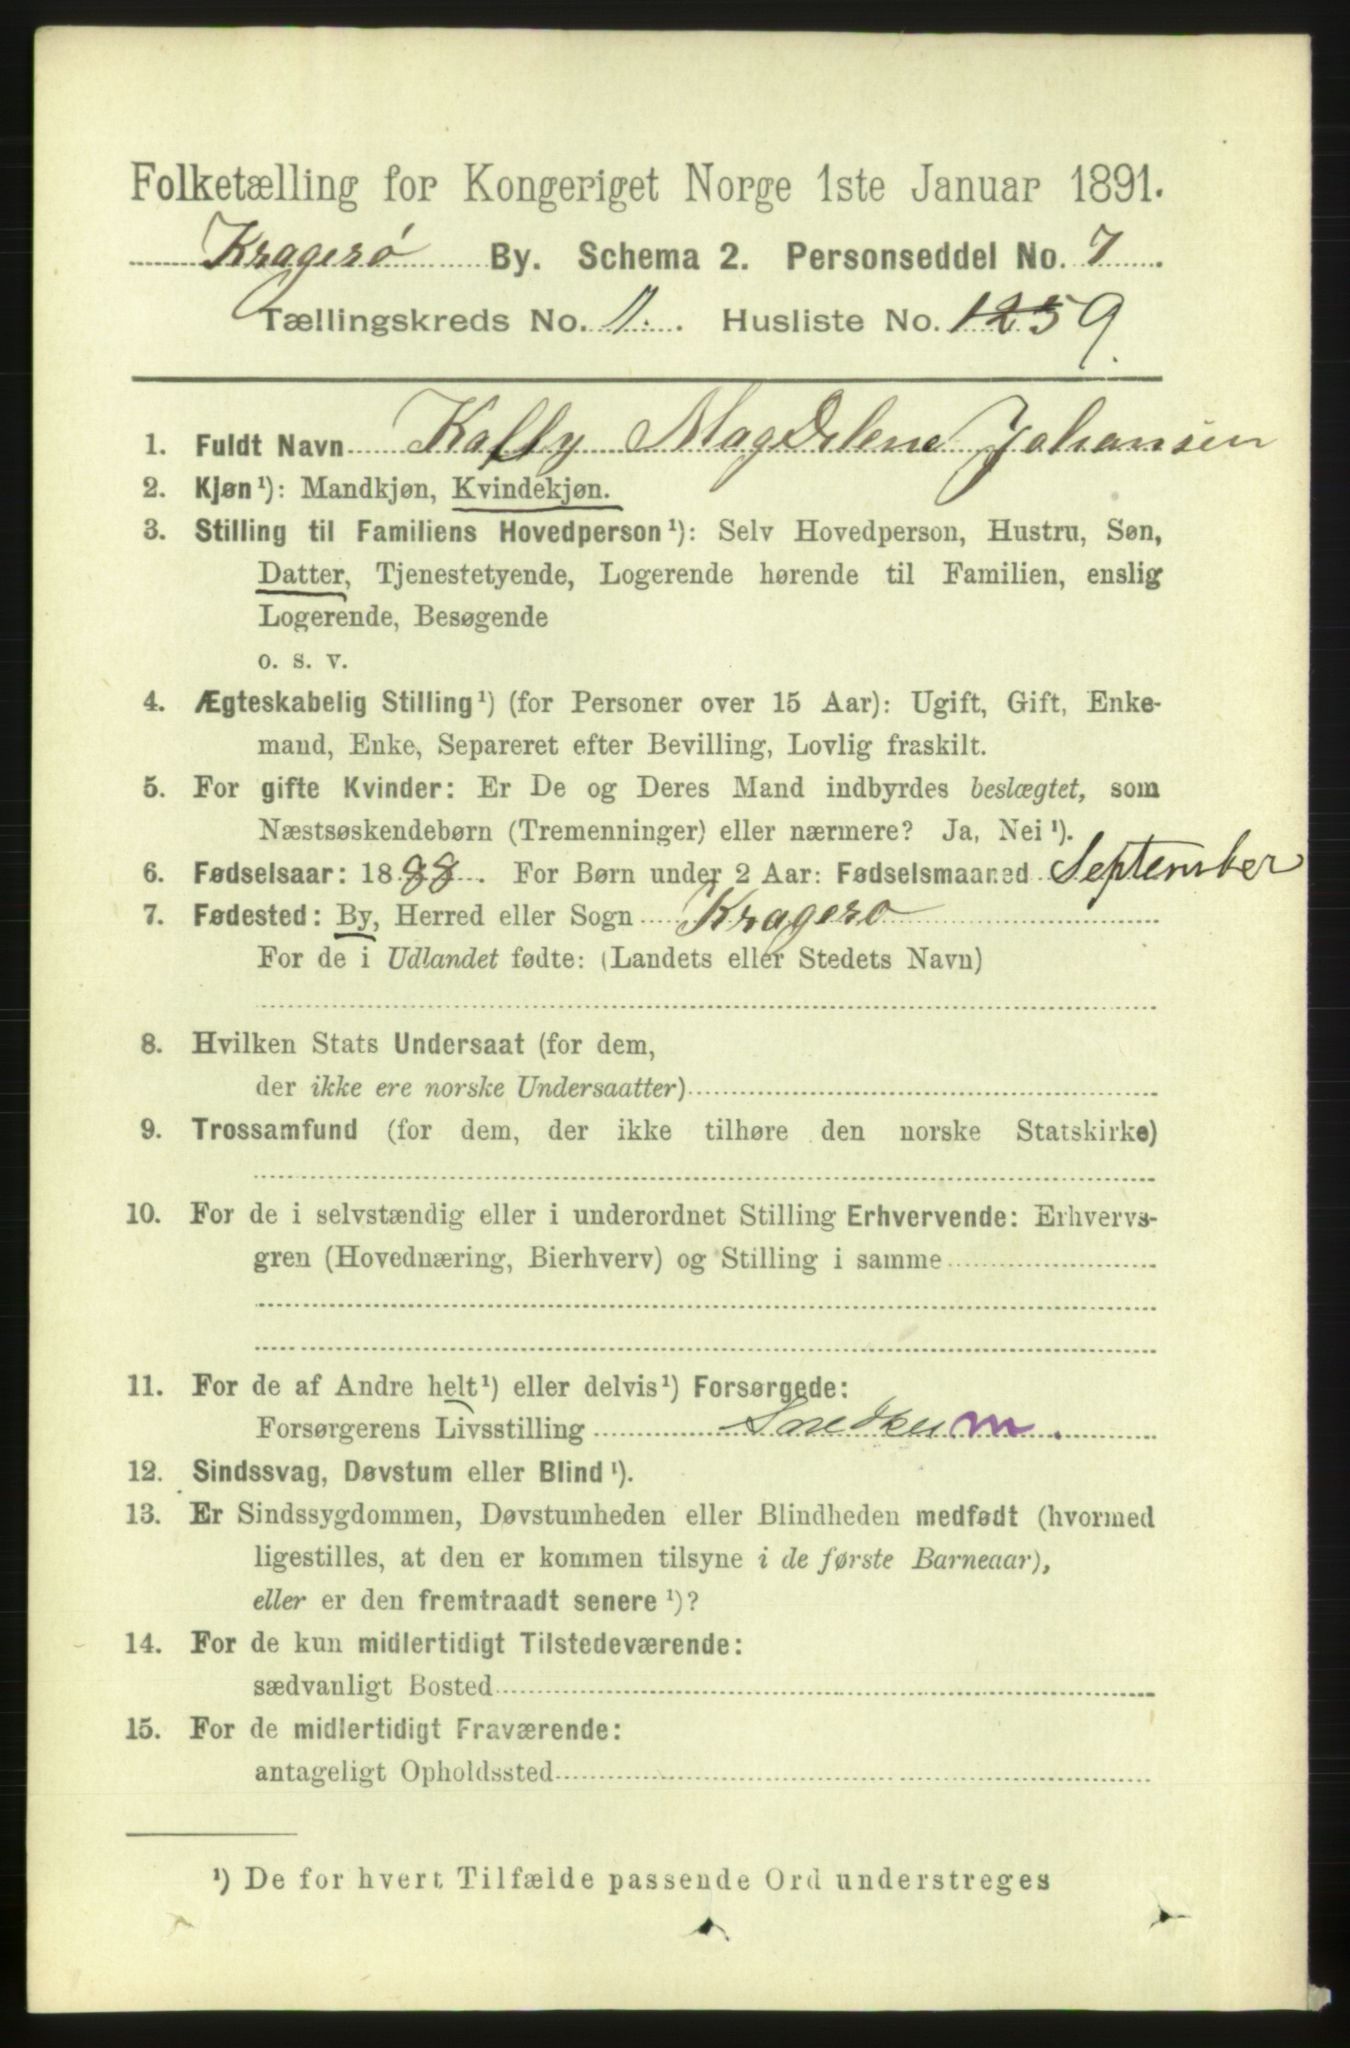 Folketælling for Kongeriget Norge 1ste Januar 1891.
Kragerø By. Schema 2. Personseddel No. 7
Tællingskreds No. 11. Husliste No. 1259.
1. Fuldt Navn Kally Magdelene Johansen
2. Kjøn¹): Mandkjøn, Kvindekjøn.
3. Stilling til Familiens Hovedperson¹): Selv Hovedperson, Hustru, Søn,
Datter, Tjenestetyende, Logerende hørende til Familien, enslig
Logerende, Besøgende
o. s. v.
4. Ægteskabelig Stilling¹) (for Personer over 15 Aar): Ugift, Gift, Enke-
mand, Enke, Separeret efter Bevilling, Lovlig fraskilt.
5. For gifte Kvinder: Er De og Deres Mand indbyrdes beslægtet, som
Næstsøskendebørn (Tremenninger) eller nærmere? Ja, Nei¹).
6. Fødselsaar: 1888. For Børn under 2 Aar: Fødselsmaaned September
7. Fødested: By, Herred eller Sogn Kragerø
For de i Udlandet fødte: (Landets eller Stedets Navn)
8. Hvilken Stats Undersaat (for dem,
der ikke ere norske Undersaatter)
9. Trossamfund (for dem, der ikke tilhøre den norske Statskirke)
10. For de i selvstændig eller i underordnet Stilling Erhvervende: Erhvervs-
gren (Hovednæring, Bierhverv) og Stilling i samme
11. For de af Andre helt¹) eller delvis¹) Forsørgede:
Forsørgerens Livsstilling m.
12. Sindssvag, Døvstum eller Blind¹).
13. Er Sindssygdommen, Døvstumheden eller Blindheden medfødt (hvormed
ligestilles, at den er kommen tilsyne i de første Barneaar),
eller er den fremtraadt senere¹)?
14. For de kun midlertidigt Tilstedeværende:
sædvanligt Bosted
15. For de midlertidigt Fraværende:
antageligt Opholdssted
¹) De for hvert Tilfælde passende Ord understreges